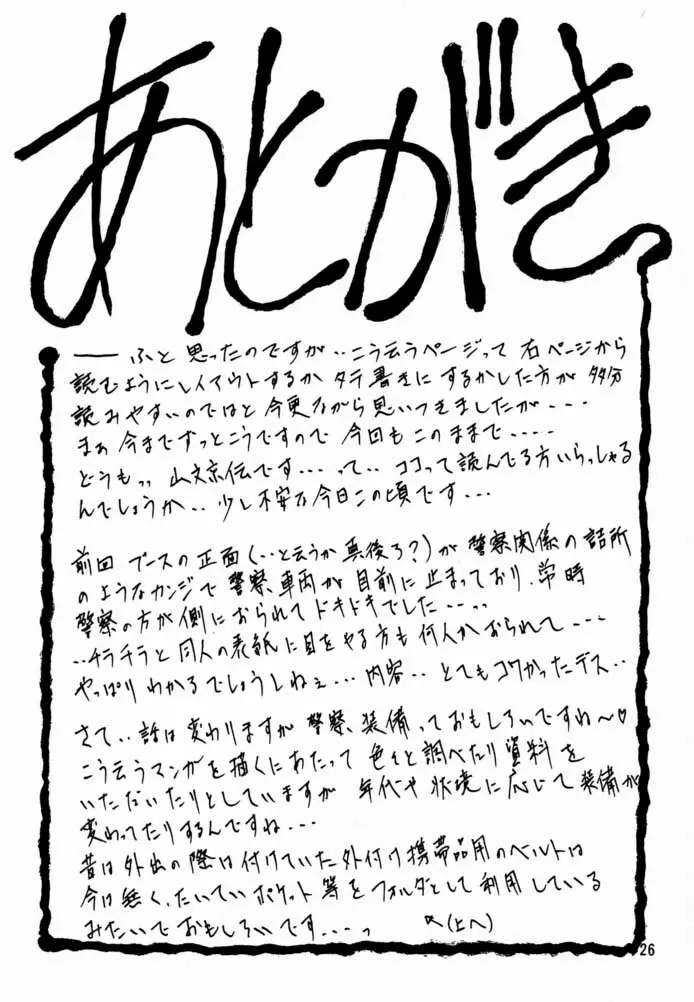 あとがき
── ふと思ったのですが‥こう云うページって右ページから
読むようにレイアウトするかタテ書きにするかした方が多分
読みやすいのではと今更ながら思いつきましたが・・・
まぁ今までずっとこうですので今回もこのままで・・・・・
どうもっっ山文京伝です・・・って・・ココって読んでる方いらっしゃる
んでしょうか・・少し不安な今日この頃です・・・
前回ブースの正面(‥と云うか真後ろ?)が警察関係の詰所
のようなカンジで警察車両が目前に止まっており、常時
警察の方が側におられてドキドキでした・・・っっ
‥チラチラと同人の表紙に目をやる方も何人かおられて・・・
やっぱりわかるでしょうしねぇ・・・内容・・とてもコワかったデス・・
さて‥話は変わりますが警察装備っておもしろいですね〜♡
こう云うマンガを描くにあたって色々と調べたり資料を
いただいたりとしていますが年代や状境に応じて装備が
変わってたりするんですね・・・
昔は外出の際は付けていた外付け携帯品用のベルトは
今は無く、たいていポケット等をフォルダとして利用している
みたいでおもしろいです・・・っ
(上へ)
26